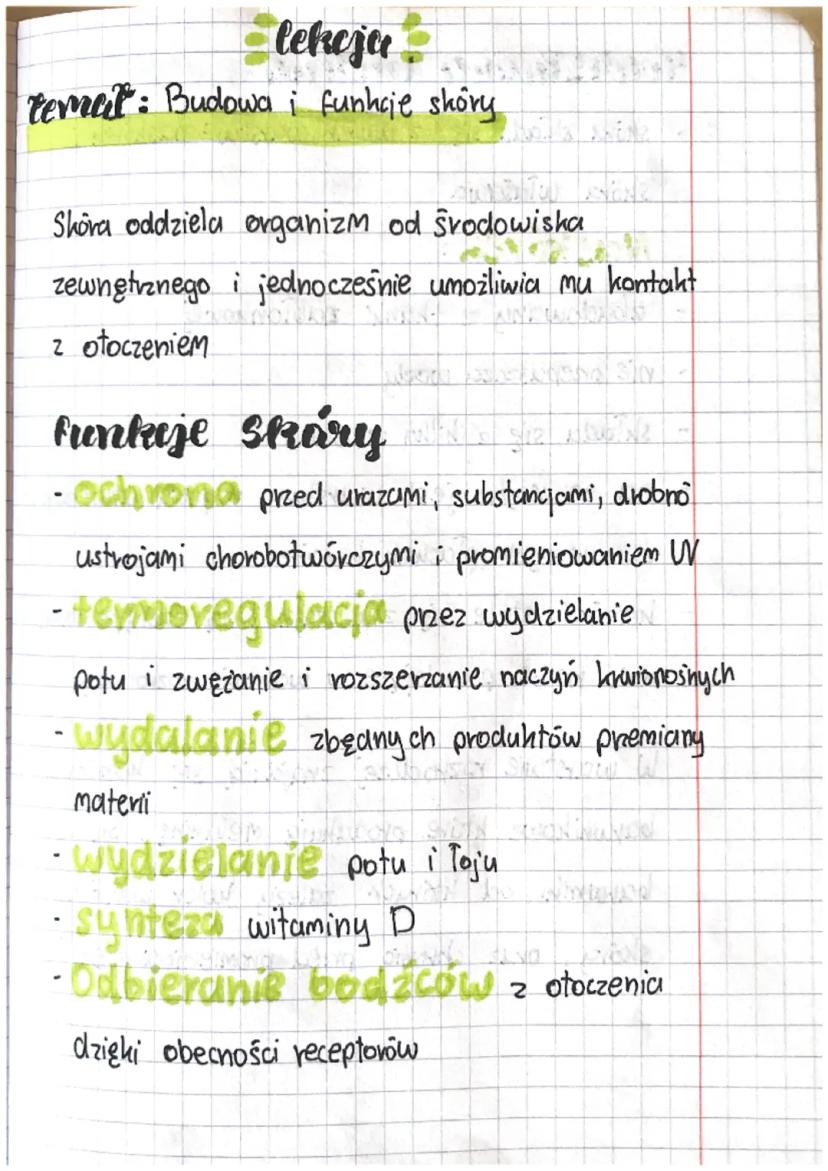 lekcja
temat: Budowa i funkcje skóry
Skóra oddziela organizm od środowiska
zewnętrznego i jednocześnie umożliwia mu kontakt
z otoczeniem
funkcje skóry
- ochrona przed urazami, substancjami, drobno
ustrojami chorobotwórczymi i promieniowaniem UV
- termoregulacja przez wydzielanie
potu i zwężanie i rozszerzanie naczyń krwionośnych
- wydalanie zbędnych produktów przemiany
materii
- wydzielanie potu i łoju
- synteza witaminy D
- Odbieranie bodźców z otoczenia
dzięki obecności receptorów